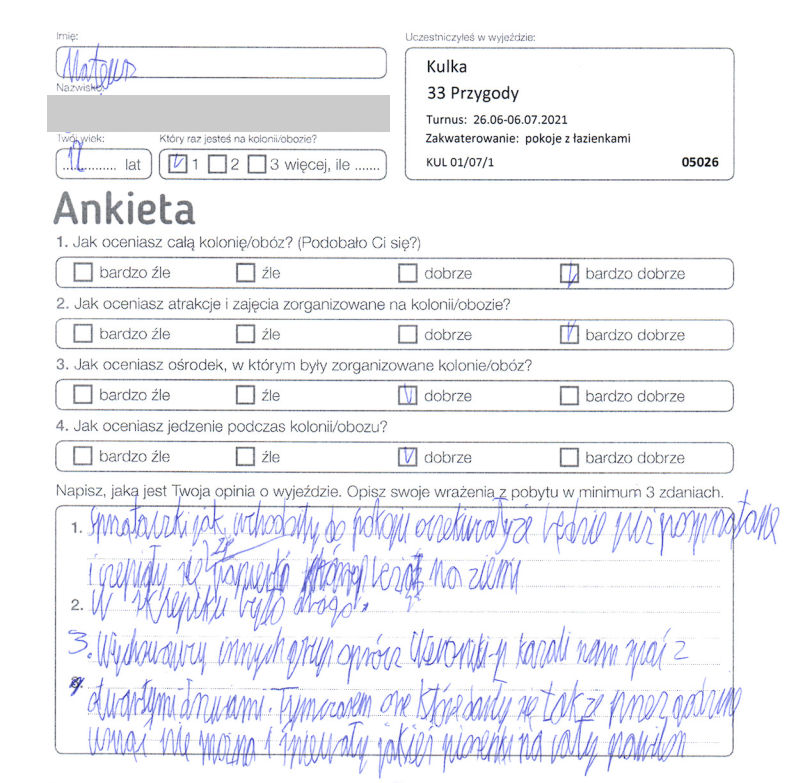 Imię:
Uczestniczyłeś w wyjeździe:
Mateusz
Kulka
Nazwisko:
33 Przygody
Turnus: 26.06-06.07.2021
Twój wiek: Który raz jesteś na kolonii/obozie?
Zakwaterowanie: pokoje z łazienkami
12 lat 1 2 3 więcej, ile .......
KUL 01/07/1 05026
Ankieta
1. Jak oceniasz całą kolonię/obóz? (Podobało Ci się?)
bardzo źle źle dobrze bardzo dobrze
2. Jak oceniasz atrakcje i zajęcia zorganizowane na kolonii/obozie?
bardzo źle źle dobrze bardzo dobrze
3. Jak oceniasz ośrodek, w którym były zorganizowane kolonie/obóz?
bardzo źle źle dobrze bardzo dobrze
4. Jak oceniasz jedzenie podczas kolonii/obozu?
bardzo źle źle dobrze bardzo dobrze
Napisz, jaka jest Twoja opinia o wyjeździe. Opisz swoje wrażenia z pobytu w minimum 3 zdaniach.
1. Sprzątaczki jak wchodziły do pokoju oczekiwały że będzie już posprzątane
i czepiały się papierka leżał na ziemi
2. W sklepiku było drogo.
3. Wychowawcy innych grup oprócz kazali nam spać z
otwartymi drzwiami. Tymczasem one które darły się także przez godzinę
usnąć nie można i śpiewały jakieś piosenki na cały pawilon